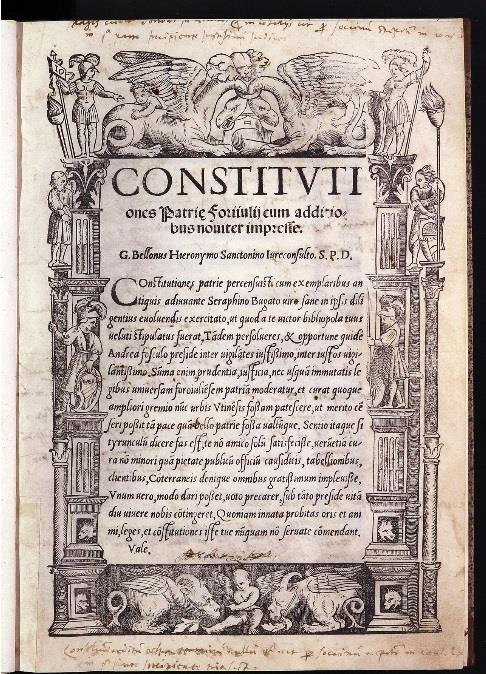 CONSTITVTI
ones Patrię foriiulij cum additio-
bus noviter impresse.
G. Bellonus Hieronymo Sanctonino Iureconsulto. S. P. D.
COnstitutiones patrie percensuisti cum exemplaribus an
tiquis adiuuante Seraphino Bugato uiro sane in ipsis dili
gentius euoluendis exercitato, ut quod a te uictor bibliopola tuus
ueluti stipulatus fuerat, Tādem persolueres, & opportune quidē
Andrea foscolo preside inter uigilātes iustissimo, inter iustos uigi
lantissimo, Sūma enim prudentia, iustitia, nec usquā immutatis le
gibus uniuersam foroiuliēsem patriā moderatur, et curat quoque
ampliori gremio nūc urbis Vtinēsis fossam patescere, ut merito cē
seri possit tā pace quā bello patrie fossa ualituque. Sentio itaque si
tyrunculū dicere fas est, te nō amico solū satisfecisse, uerūetiā cu
ra nō minori quā pietate publicū officiū causidicis, tabellionibus,
clientibus, Coterraneis denique omnibus gratissimum impleuisse.
Vnum uero, modo dari posset, uoto precarer, sub tāto preside uitā
diu uiuere nobis cōtingeret, Quoniam innata probitas oris et ani
mi, leges, et cōstitutiones iste tue nūquam nō seruate cōmendant.
Vale.